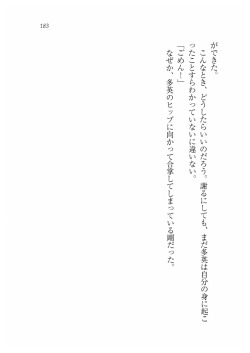 ができた。
　こんなとき、どうしたらいいのだろう。謝るにしても、まだ多英は自分の身に起こ
ったことすらわかっていないに違いない。
「ごめん！」
　なぜか、多英のヒップに向かって合掌してしまっている剛だった。
183